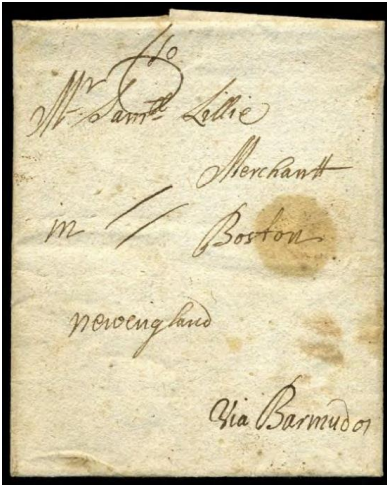 To
Mr Samll Lillie
Merchantt
in // Boston
newengland
Via Barmudos